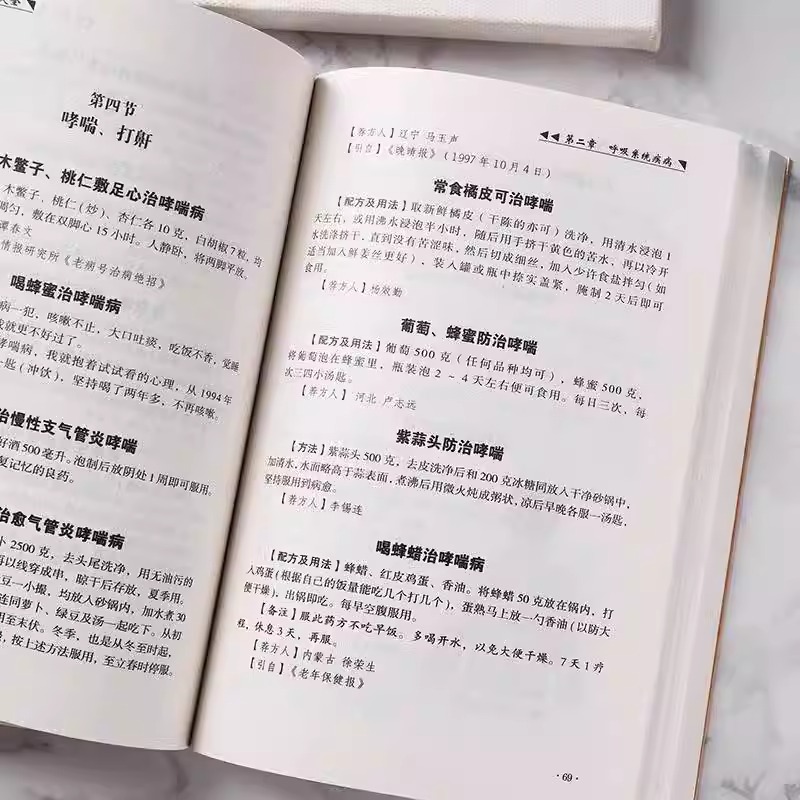 大全
第四节
哮喘、打鼾
木鳖子、桃仁敷足心治哮喘病
木鳖子、桃仁(炒)、杏仁各10克,白胡椒7粒,均
调匀,敷在双脚心15小时。人静卧,将两脚平放。
谭春文
情报研究所《老病号治病绝招》
喝蜂蜜治哮喘病
病一犯,咳嗽不止,大口吐痰,吃饭不香,觉睡
我就更不好过了。
哮喘病,我就抱着试试看的心理,从1994年
匙(冲饮),坚持喝了两年多,不再咳嗽。
治慢性支气管炎哮喘
好酒500毫升。泡制后放阴处1周即可服用。
复记忆的良药。
治愈气管炎哮喘病
卜2500克,去头尾洗净,用无油污的
再以线穿成串,晾干后存放,夏季用。
豆一小撮,均放入砂锅内,加水煮30
连同萝卜、绿豆及汤一起吃下。从初
用至末伏。冬季,也是从冬至时起,
,按上述方法服用,至立春时停服。
第二章 呼吸系统疾病
【荐方人】辽宁 马玉声
【引自】《晚晴报》(1997年10月4日)
常食橘皮可治哮喘
【配方及用法】取新鲜橘皮(干陈的亦可)洗净,用清水浸泡1
天左右,或用沸水浸泡半小时,随后用手挤干黄色的苦水,再以冷开
水洗涤挤干,直到没有苦涩味,然后切成细丝,加入少许食盐拌匀(如
适当加入鲜姜丝更好),装入罐或瓶中捺实盖紧,腌制2天后即可
食用。
【荐方人】杨效勤
葡萄、蜂蜜防治哮喘
【配方及用法】葡萄500克(任何品种均可),蜂蜜500克,
将葡萄泡在蜂蜜里,瓶装泡2~4天左右便可食用。每日三次,每
次三四小汤匙。
【荐方人】河北 卢志远
紫蒜头防治哮喘
【方法】紫蒜头500克,去皮洗净后和200克冰糖同放入干净砂锅中,
加清水,水面略高于蒜表面,煮沸后用微火炖成粥状,凉后早晚各服一汤匙,
坚持服用到病愈。
【荐方人】李锡连
喝蜂蜡治哮喘病
【配方及用法】蜂蜡、红皮鸡蛋、香油。将蜂蜡50克放在锅内,打
入鸡蛋(根据自己的饭量能吃几个打几个),蛋熟马上放一勺香油(以防大
便干燥),出锅即吃。每早空腹服用。
【备注】服此药方不吃早饭。多喝开水,以免大便干燥。7天1疗
程,休息3天,再服。
【荐方人】内蒙古 徐荣生
【引自】《老年保健报》
·69·